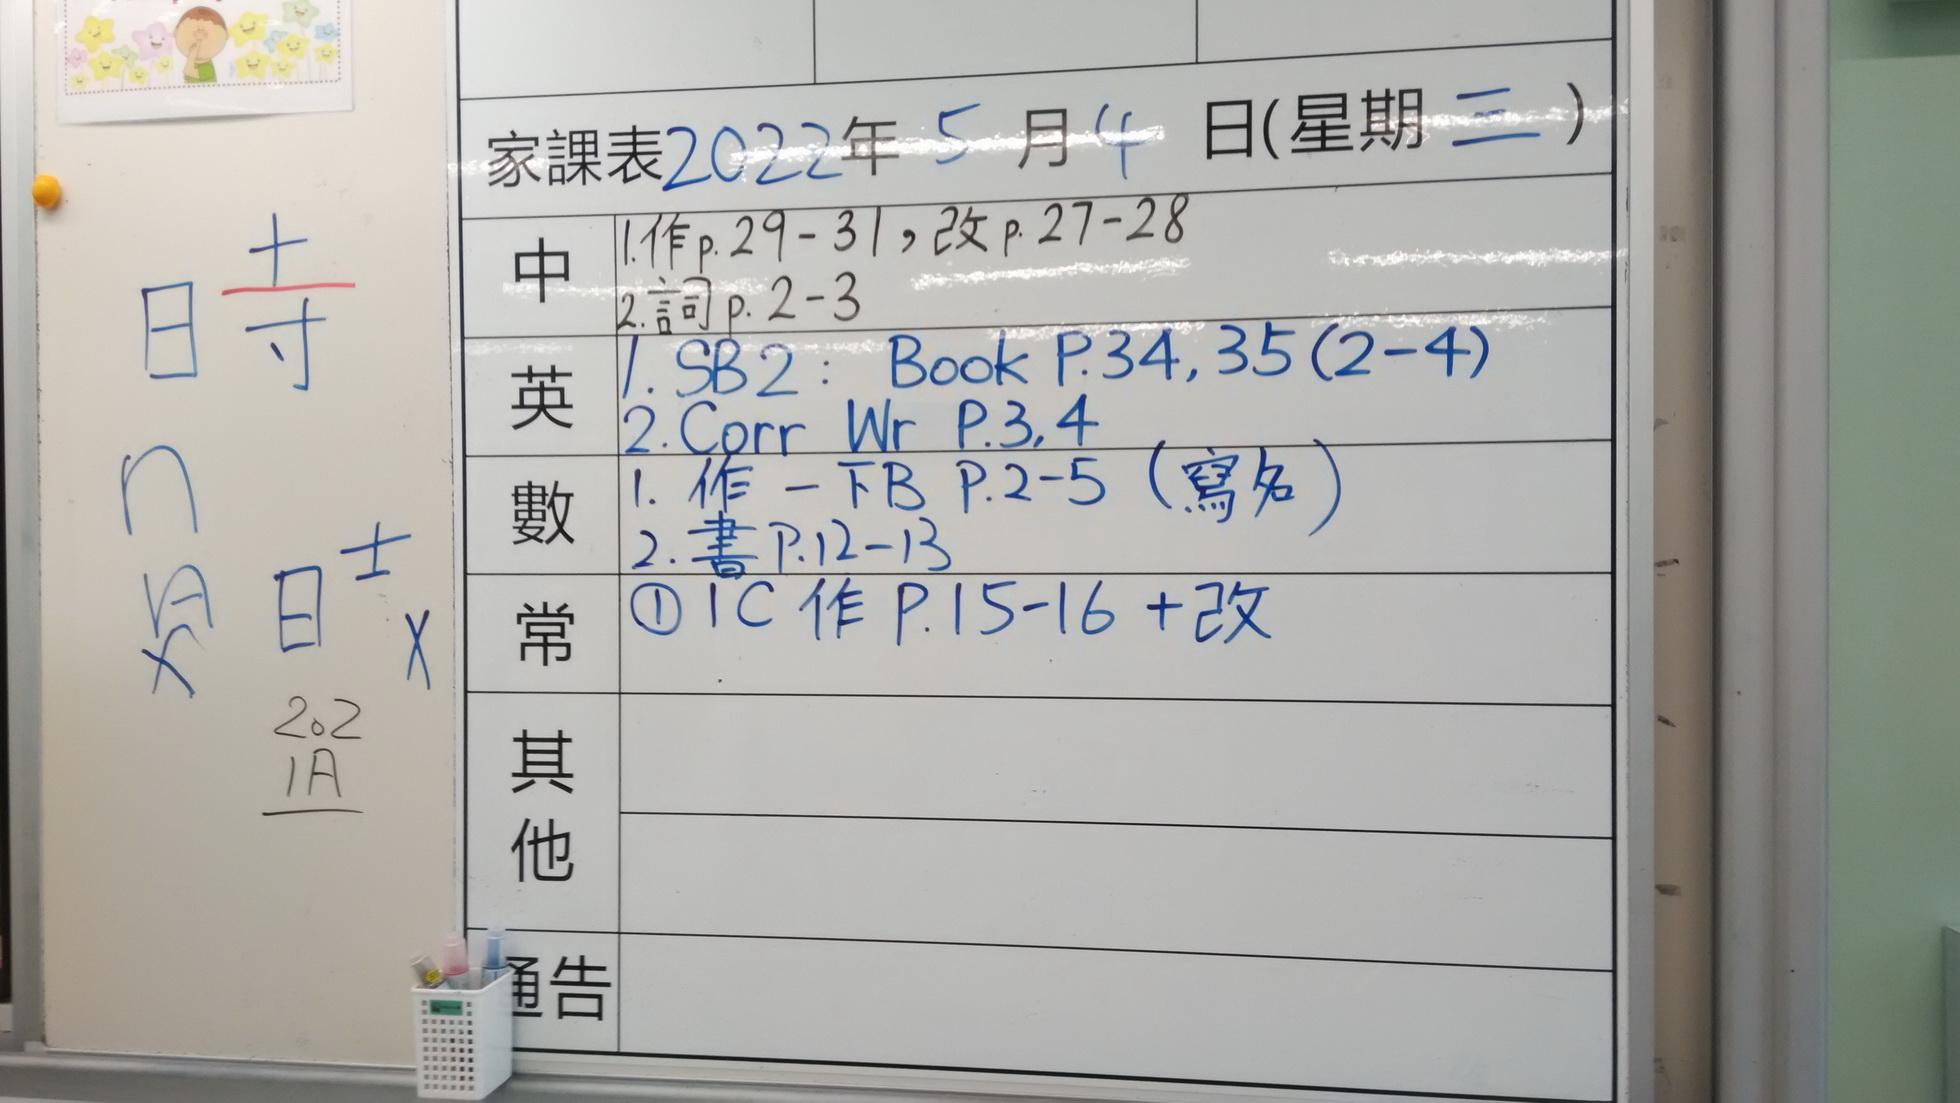 家課表2022年5月4日(星期三)
中
1.作p.29-31,改p.27-28
2.詞p.2-3
英
1. SB2: Book P.34,35(2-4)
2. Corr Wr P.3,4
數
1. 作-下B P.2-5 (寫名)
2. 書P.12-13
常
① 1C 作 P.15-16 +改
其他
通告
日
十
寸
n
日 士
x
202
1A